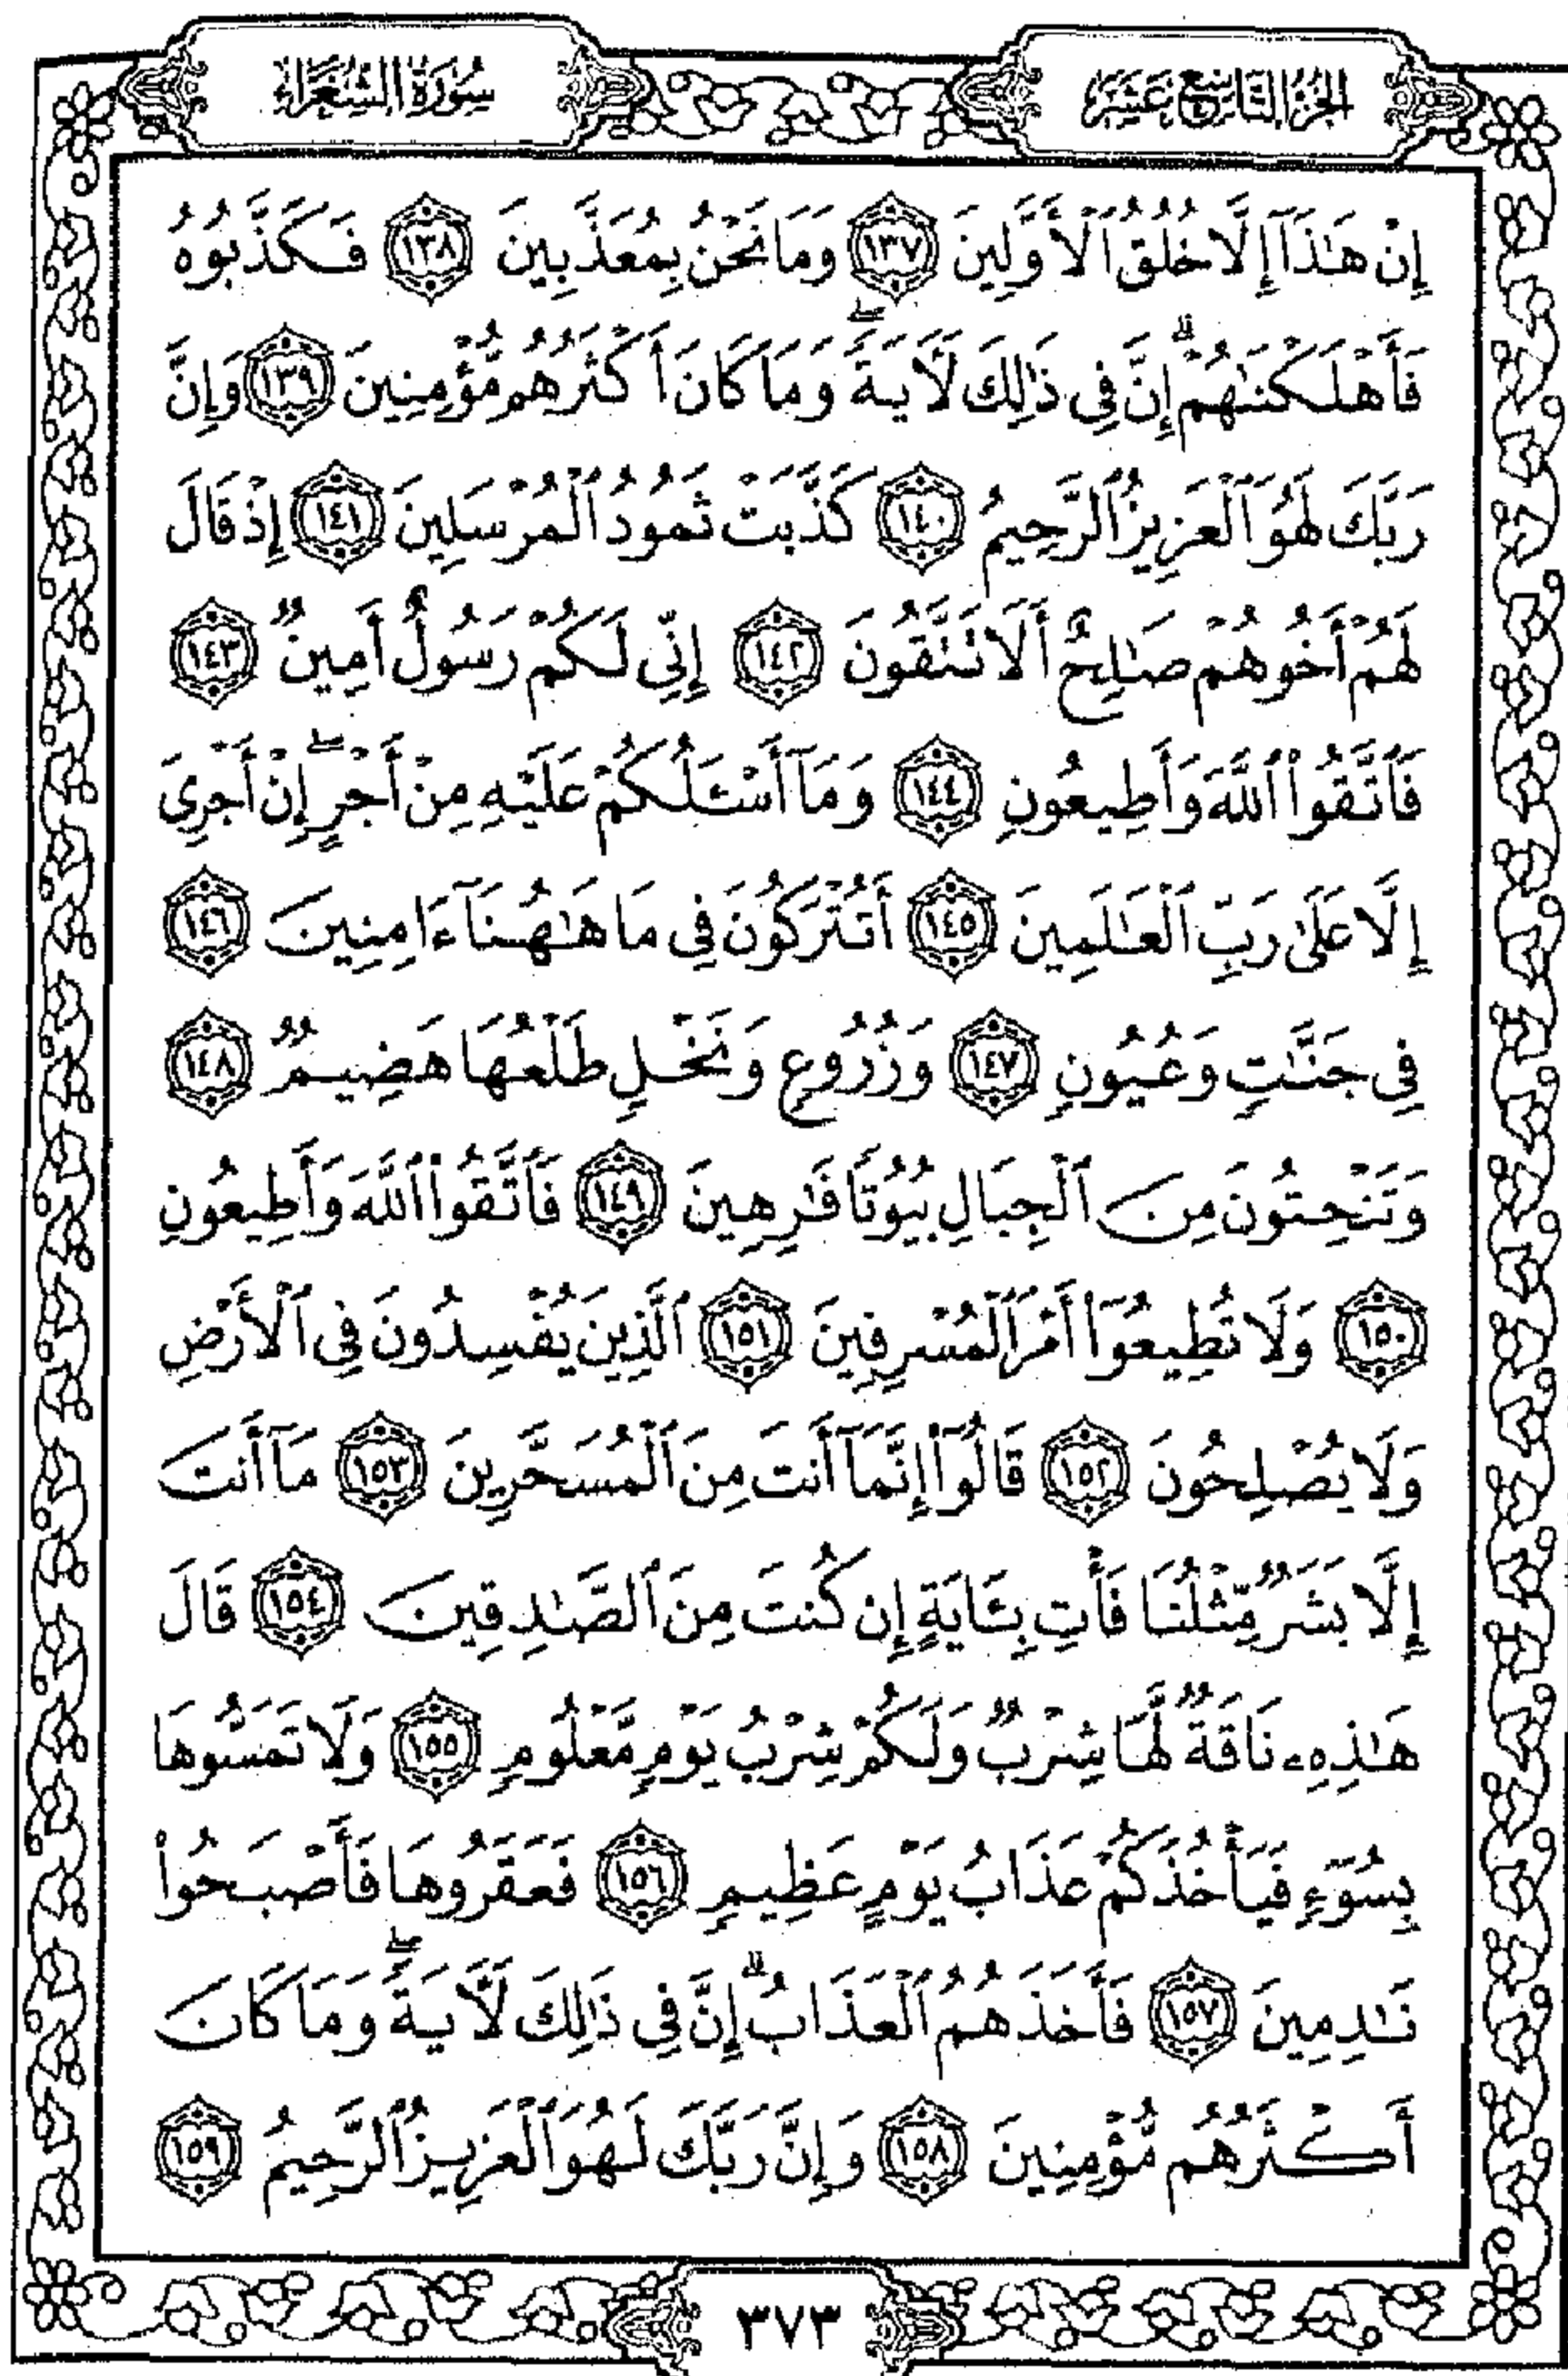 الجزء التاسع عشر
سورة الشعراء
إِنْ هَٰذَآ إِلَّا خُلُقُ ٱلْأَوَّلِينَ ١٣٧ وَمَا نَحْنُ بِمُعَذَّبِينَ ١٣٨ فَكَذَّبُوهُ
فَأَهْلَكْنَٰهُمْ ۗ إِنَّ فِى ذَٰلِكَ لَـَٔايَةً ۖ وَمَا كَانَ أَكْثَرُهُم مُّؤْمِنِينَ ١٣٩ وَإِنَّ
رَبَّكَ لَهُوَ ٱلْعَزِيزُ ٱلرَّحِيمُ ١٤٠ كَذَّبَتْ ثَمُودُ ٱلْمُرْسَلِينَ ١٤١ إِذْ قَالَ
لَهُمْ أَخُوهُمْ صَٰلِحٌ أَلَا تَتَّقُونَ ١٤٢ إِنِّى لَكُمْ رَسُولٌ أَمِينٌ ١٤٣
فَٱتَّقُوا۟ ٱللَّهَ وَأَطِيعُونِ ١٤٤ وَمَآ أَسْـَٔلُكُمْ عَلَيْهِ مِنْ أَجْرٍ ۖ إِنْ أَجْرِىَ
إِلَّا عَلَىٰ رَبِّ ٱلْعَٰلَمِينَ ١٤٥ أَتُتْرَكُونَ فِى مَا هَٰهُنَآ ءَامِنِينَ ١٤٦
فِى جَنَّٰتٍ وَعُيُونٍ ١٤٧ وَزُرُوعٍ وَنَخْلٍ طَلْعُهَا هَضِيمٌ ١٤٨
وَتَنْحِتُونَ مِنَ ٱلْجِبَالِ بُيُوتًا فَٰرِهِينَ ١٤٩ فَٱتَّقُوا۟ ٱللَّهَ وَأَطِيعُونِ
١٥٠ وَلَا تُطِيعُوٓا۟ أَمْرَ ٱلْمُسْرِفِينَ ١٥١ ٱلَّذِينَ يُفْسِدُونَ فِى ٱلْأَرْضِ
وَلَا يُصْلِحُونَ ١٥٢ قَالُوٓا۟ إِنَّمَآ أَنتَ مِنَ ٱلْمُسَحَّرِينَ ١٥٣ مَآ أَنتَ
إِلَّا بَشَرٌ مِّثْلُنَا فَأْتِ بِـَٔايَةٍ إِن كُنتَ مِنَ ٱلصَّٰدِقِينَ ١٥٤ قَالَ
هَٰذِهِۦ نَاقَةٌ لَّهَا شِرْبٌ وَلَكُمْ شِرْبُ يَوْمٍ مَّعْلُومٍ ١٥٥ وَلَا تَمَسُّوهَا
بِسُوٓءٍ فَيَأْخُذَكُمْ عَذَابُ يَوْمٍ عَظِيمٍ ١٥٦ فَعَقَرُوهَا فَأَصْبَحُوا۟
نَٰدِمِينَ ١٥٧ فَأَخَذَهُمُ ٱلْعَذَابُ ۗ إِنَّ فِى ذَٰلِكَ لَـَٔايَةً ۖ وَمَا كَانَ
أَكْثَرُهُم مُّؤْمِنِينَ ١٥٨ وَإِنَّ رَبَّكَ لَهُوَ ٱلْعَزِيزُ ٱلرَّحِيمُ ١٥٩
٣٧٣